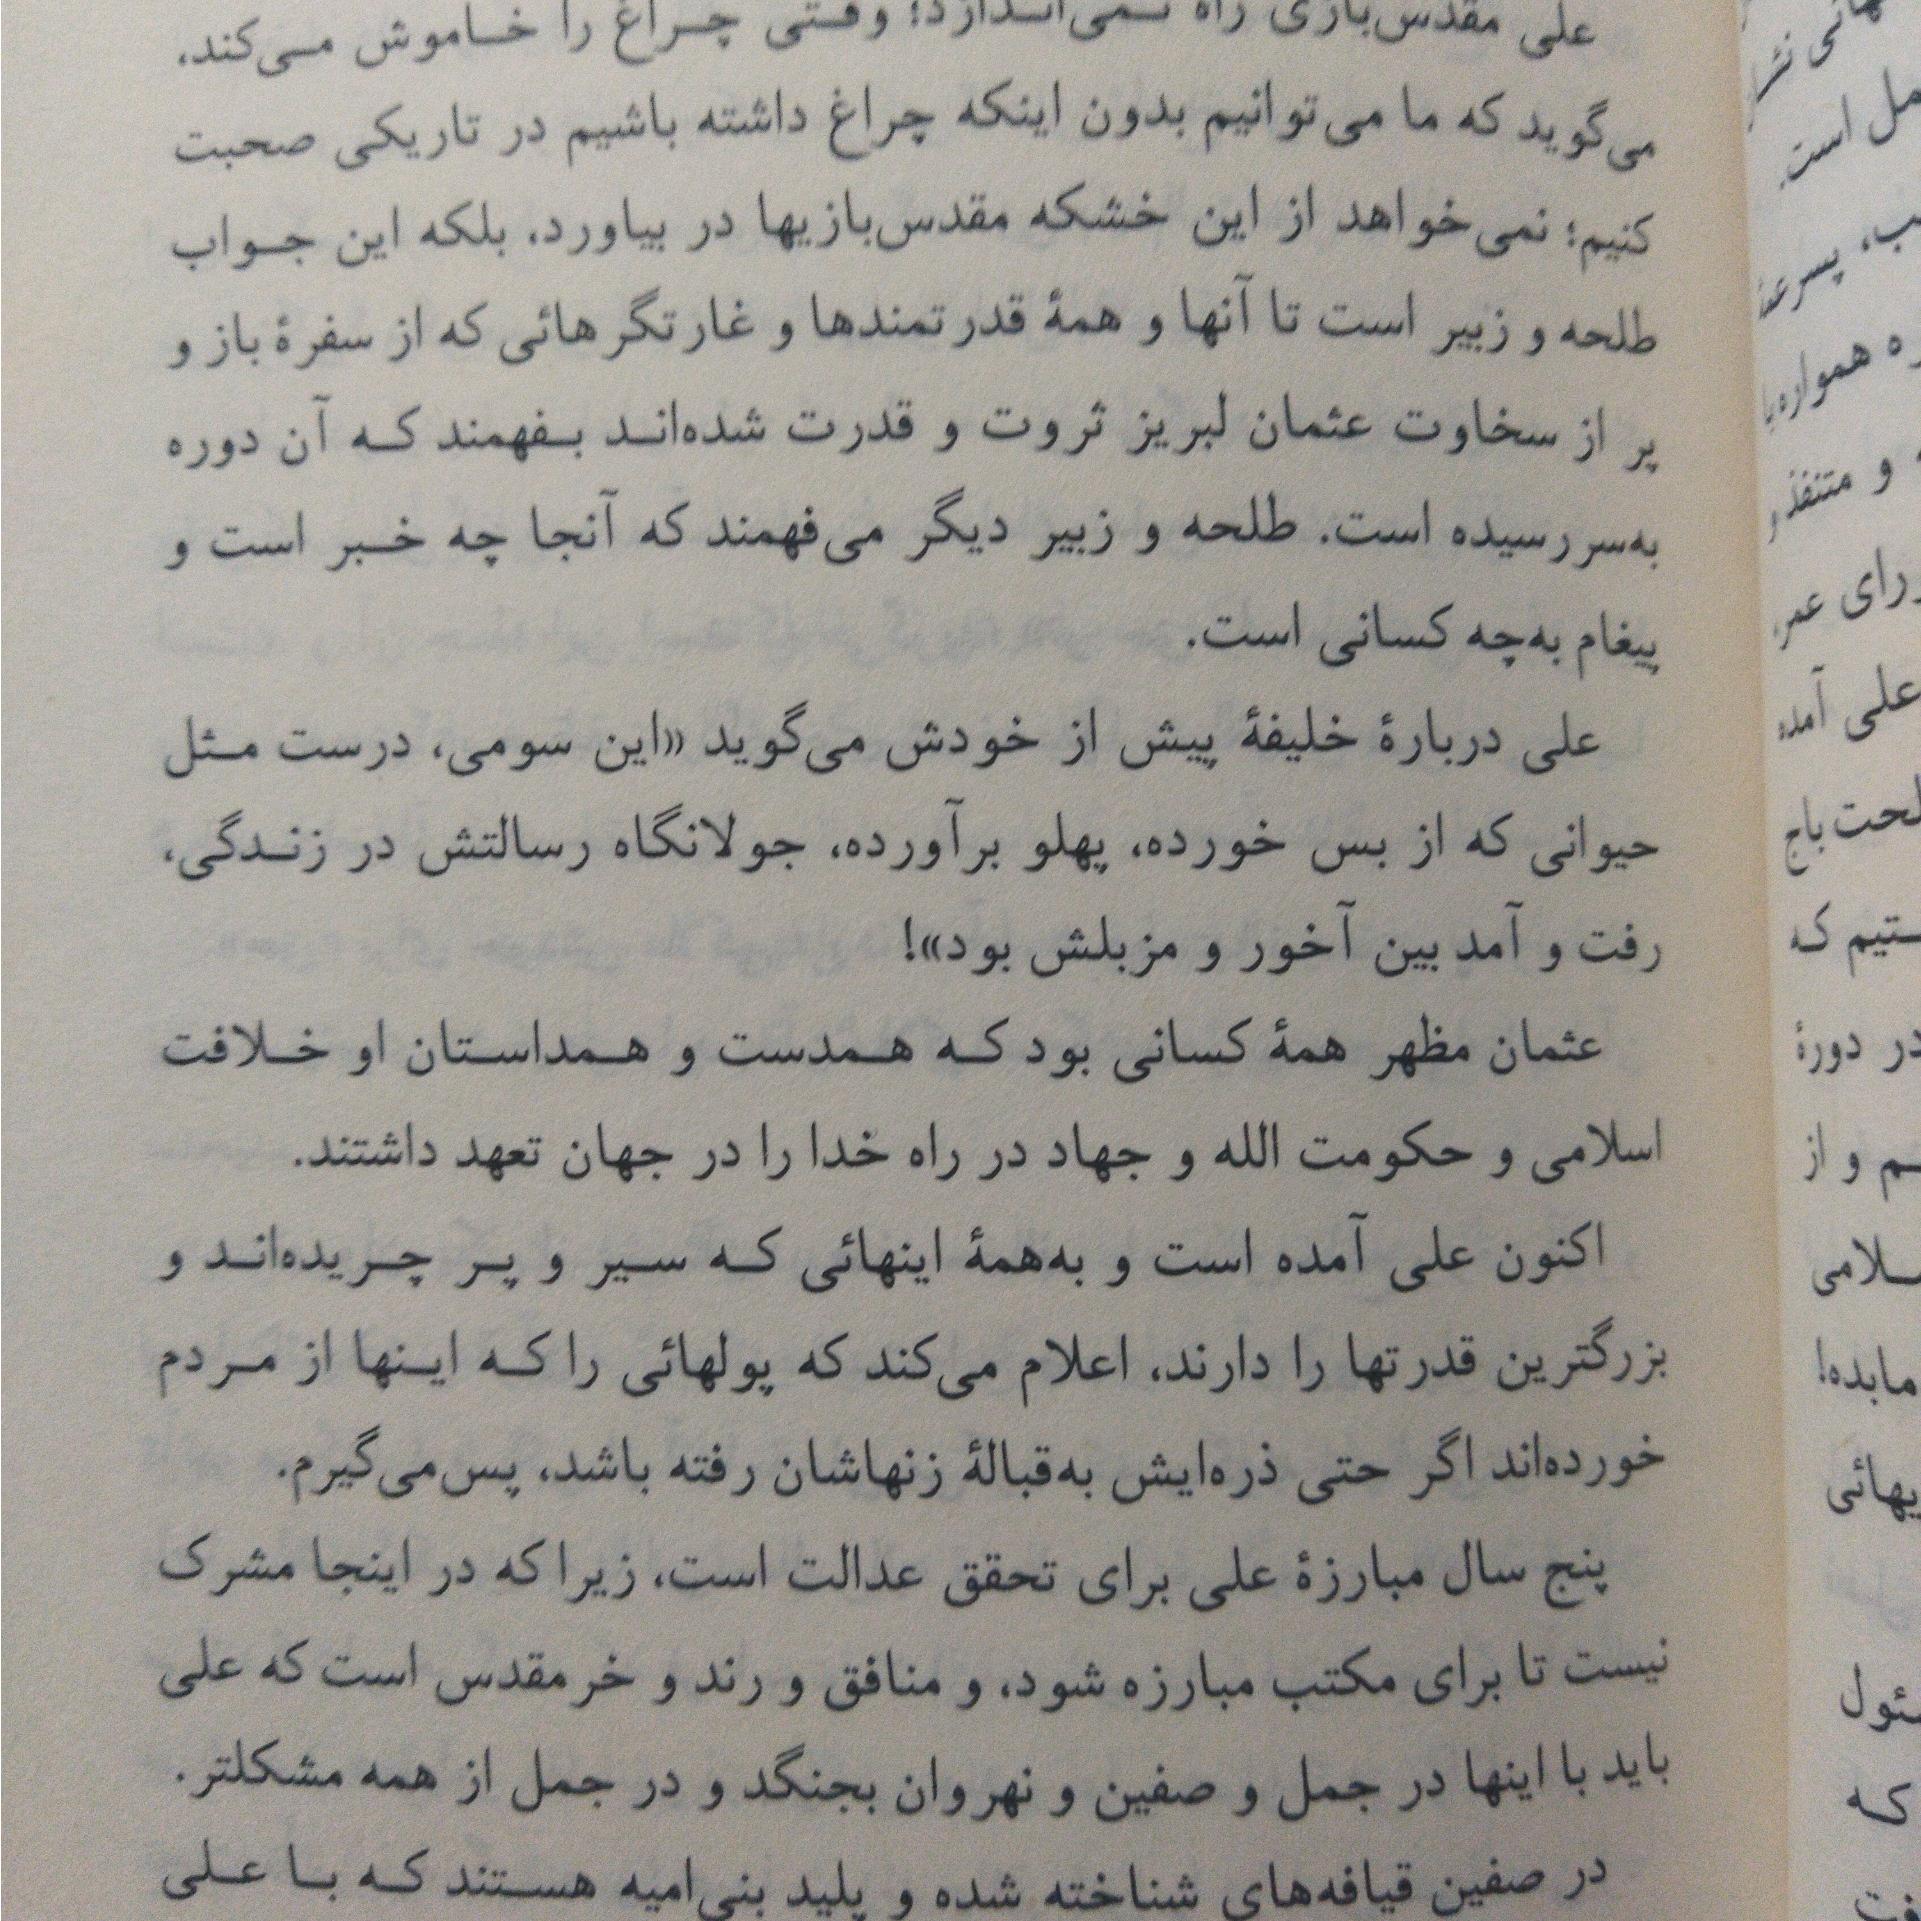 علی مقدس‌بازی راه نمی‌اندازد؛ وقتی چراغ را خاموش می‌کند،
می‌گوید که ما می‌توانیم بدون اینکه چراغ داشته باشیم در تاریکی صحبت
کنیم؛ نمی‌خواهد از این خشکه مقدس‌بازیها در بیاورد، بلکه این جواب
طلحه و زبیر است تا آنها و همهٔ قدرتمندها و غارتگرهائی که از سفرهٔ باز و
پر از سخاوت عثمان لبریز ثروت و قدرت شده‌اند بفهمند که آن دوره
به‌سررسیده است. طلحه و زبیر دیگر می‌فهمند که آنجا چه خبر است و
پیغام به‌چه کسانی است.
علی دربارهٔ خلیفهٔ پیش از خودش می‌گوید «این سومی، درست مثل
حیوانی که از بس خورده، پهلو برآورده، جولانگاه رسالتش در زندگی،
رفت و آمد بین آخور و مزبلش بود»!
عثمان مظهر همهٔ کسانی بود که همدست و همداستان او خلافت
اسلامی و حکومت الله و جهاد در راه خدا را در جهان تعهد داشتند.
اکنون علی آمده است و به‌همهٔ اینهائی که سیر و پر چریده‌اند و
بزرگترین قدرتها را دارند، اعلام می‌کند که پولهائی را که اینها از مردم
خورده‌اند اگر حتی ذره‌ایش به‌قبالهٔ زنهاشان رفته باشد، پس‌می‌گیرم.
پنج سال مبارزهٔ علی برای تحقق عدالت است، زیرا که در اینجا مشرک
نیست تا برای مکتب مبارزه شود، و منافق و رند و خرمقدس است که علی
باید با اینها در جمل و صفین و نهروان بجنگد و در جمل از همه مشکلتر.
در صفین قیافه‌های شناخته شده و پلید بنی‌امیه هستند که با علی
مل است.
ب، پسرعم
ه همواره با
و متنفذ
رای عمر،
علی آمده
لحت باج
ستیم که
در دورهٔ
م و از
سلامی
مابده!
یهائی
ئول
که